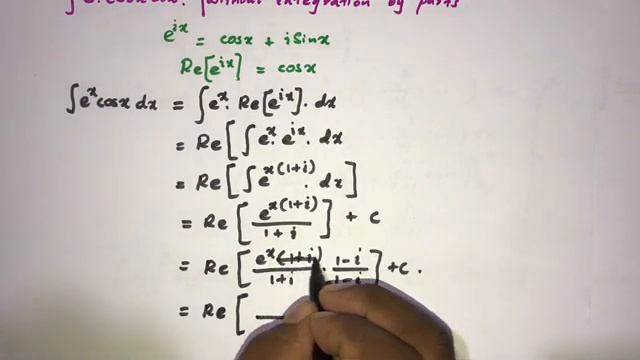 ∫e^x.cosx dx. (without integration by parts
e^{ix} = cosx + i sinx
Re[e^{ix}] = cosx
∫e^x cosx dx = ∫e^x. Re[e^{ix}]. dx
= Re[∫e^x. e^{ix}. dx
= Re[∫e^{x(1+i)}. dx]
= Re[e^{x(1+i)}/1+i] + c
= Re[e^x(1+i)/1+i . 1-i/1-i] + c.
= Re[